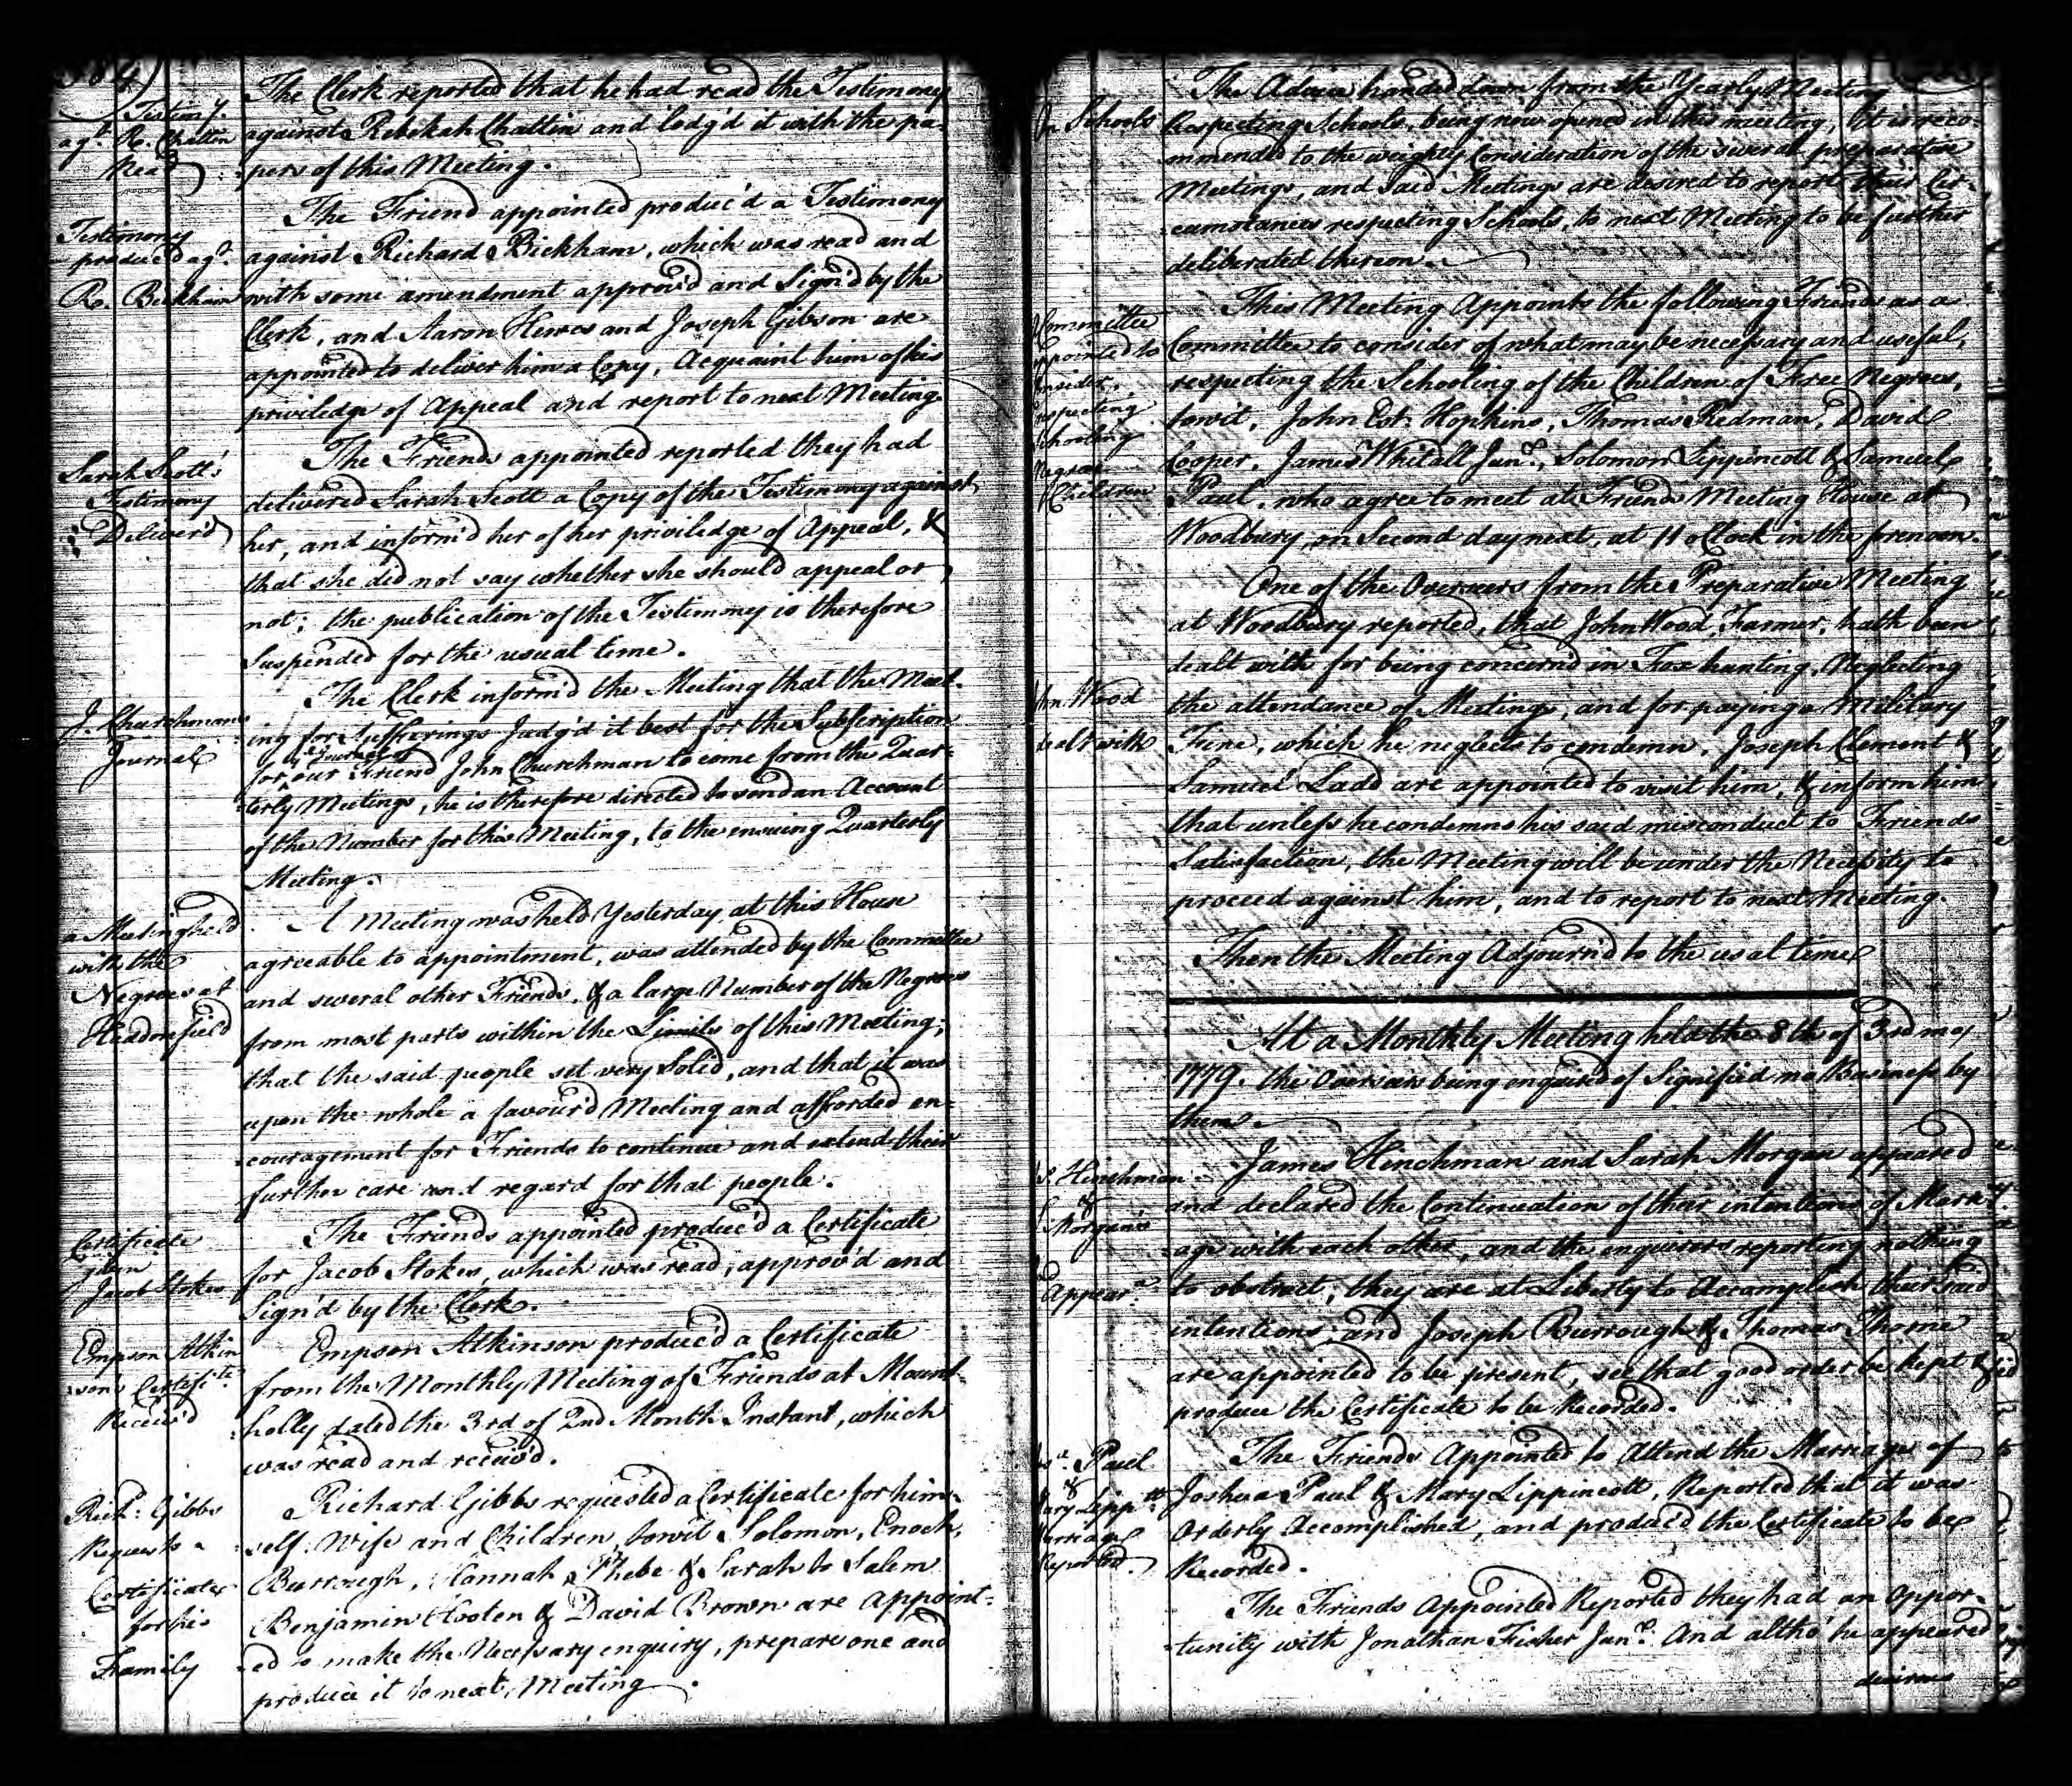 Testimy.
agt. R. Chattin
Read
The Clerk reported that he had read the Testimony
against Rebekah Chattin and lodg'd it with the pa-
pers of this Meeting.
Testimony
produc'd agt.
R. Bickham
The Friend appointed produc'd a Testimony
against Richard Bickham, which was read and
with some amendment approv'd and Sign'd by the
Clerk, and Aaron Hewes and Joseph Gibson are
appointed to deliver him a Copy, Acquaint him of his
priviledge of Appeal and report to next Meeting.
Sarah Scott's
Testimony
Deliver'd
The Friends appointed reported they had
delivered Sarah Scott a Copy of the Testimony against
her, and inform'd her of her priviledge of Appeal, &
that she did not say whether she should appeal or
not; the publication of the Testimony is therefore
Suspended for the usual time.
J. Churchmans
Journal
The Clerk inform'd the Meeting that the Meet-
ing for Sufferings Judg'd it best for the Subscription
for ye Journal of our Friend John Churchman to come from the Quar-
terly Meetings, he is therefore directed to send an Account
of the Number for this Meeting, to the ensuing Quarterly
Meeting.
a Meeting held
with the
Negroes at
Haddonfield
A Meeting was held Yesterday at this House
agreable to appointment, was attended by the Committee
and several other Friends, & a large Number of the Negroes
from most parts within the Limits of this Meeting;
that the said people set very Solid, and that it was
upon the whole a favour'd Meeting and afforded en-
couragement for Friends to continue and extend their
further care and regard for that people.
Certificate
given
Jacob Stokes
The Friends appointed produc'd a Certificate
for Jacob Stokes, which was read, approv'd and
Sign'd by the Clerk.
Empson Atkin
son's Certificte
Receiv'd
Empson Atkinson produc'd a Certificate
from the Monthly Meeting of Friends at Mount-
holly dated the 3rd of 2nd Month Instant, which
was read and receiv'd.
Richd: Gibbs
Requests a
Certificate
for his
Family
Richard Gibbs requested a Certificate for him-
self, Wife and Children, towit Solomon, Enoch,
Burrough, Hannah, Phebe & Sarah to Salem
Benjamin Hooten & David Brown are Appoint-
ed to make the Necessary enquiry, prepare one and
produce it to next Meeting.
On Schools
The Advice handed down from the Yearly Meeting
Respecting Schools, being now opened in this meeting, It is reco-
mmended to the weighty Consideration of the several preparative
Meetings, and said Meetings are desired to report their Cir-
cumstances respecting Schools, to next Meeting to be further
deliberated thereon.
Committee
appointed to
Consider
respecting
Schooling
Negroe
Children
This Meeting Appoints the following Friends as a
Committee to consider of what may be necessary and useful,
respecting the Schooling of the Children of Free Negroes,
towit, John Est. Hopkins, Thomas Redman, David
Cooper, James Whitall Junr., Solomon Lippincott & Samuel
Paul, who agree to meet at Friends Meeting House at
Woodbury, on Second day next, at 11 oClock in the forenoon.
John Wood
dealt with
One of the Overseers from the Preparative Meeting
at Woodbury reported, that John Wood, Farmer, hath been
dealt with for being concern'd in Fox hunting, Neglecting
the attendance of Meetings, and for paying a Military
Fine, which he neglects to condemn, Joseph Clement &
Samuel Ladd are appointed to visit him, & inform him
that unless he condemns his said misconduct to Friends
Satisfaction, the Meeting will be under the Necessity to
proceed against him, and to report to next Meeting.
Then the Meeting Adjourn'd to the usal time
At a Monthly Meeting held the 8th of 3rd mo
1779. the Overseers being enquired of Signified no Business by
them.
Js. Hinchman
&
S. Morgan's
2d
Appear.a
James Hinchman and Sarah Morgan appeared
and declared the Continuation of their intentions of Marri-
age with each other, and the enquirers reporting nothing
to obstruct, they are at Liberty to Accomplish their said
intentions; and Joseph Burrough & Thomas Thorne
are appointed to be present, see that good order be kept &
produce the Certificate to be Recorded.
Josa. Paul
&
Mary Lippts
Marriage
Reported.
The Friends Appointed to Attend the Marriage of
Joshua Paul & Mary Lippincott, Reported that it was
Orderly Accomplished, and produc'd the Certificate to be
Recorded.
The Friends Appointed Reported they had an Oppor-
tunity with Jonathan Fisher Junr. And altho' he appeared
desirous